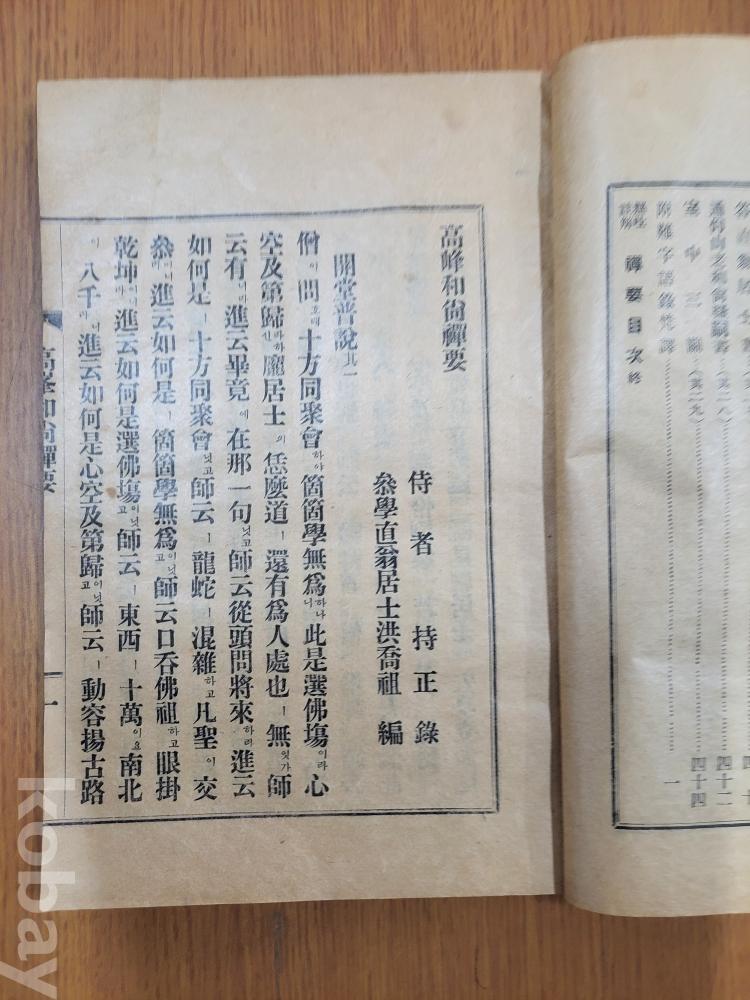 室中三關(第二九)……四十四
附難字語錄梵譯……一
禪要目次終
高峰和尙禪要
侍者 持正 錄
叅學直翁居士洪喬祖 編
開堂普說其一
僧이問호대十方同聚會하야箇箇學無爲하나니此是選佛場이라心
空及第歸라하신龐居士의恁麼道ㅣ還有爲人處也ㅣ無잇가師
云有니라進云畢竟에在那一句닛고師云從頭問將來하라進云
如何是ㅣ十方同聚會닛고師云ㅣ龍蛇ㅣ混雜하고凡聖이交
叅이니라進云如何是ㅣ箇箇學無爲이닛고師云口吞佛祖하고眼掛
乾坤이니라進云如何是選佛場이닛고師云ㅣ東西ㅣ十萬이요南北
이八千이니라進云如何是心空及第歸이닛고師云ㅣ動容揚古路
高峰和尙禪要
一
kobay